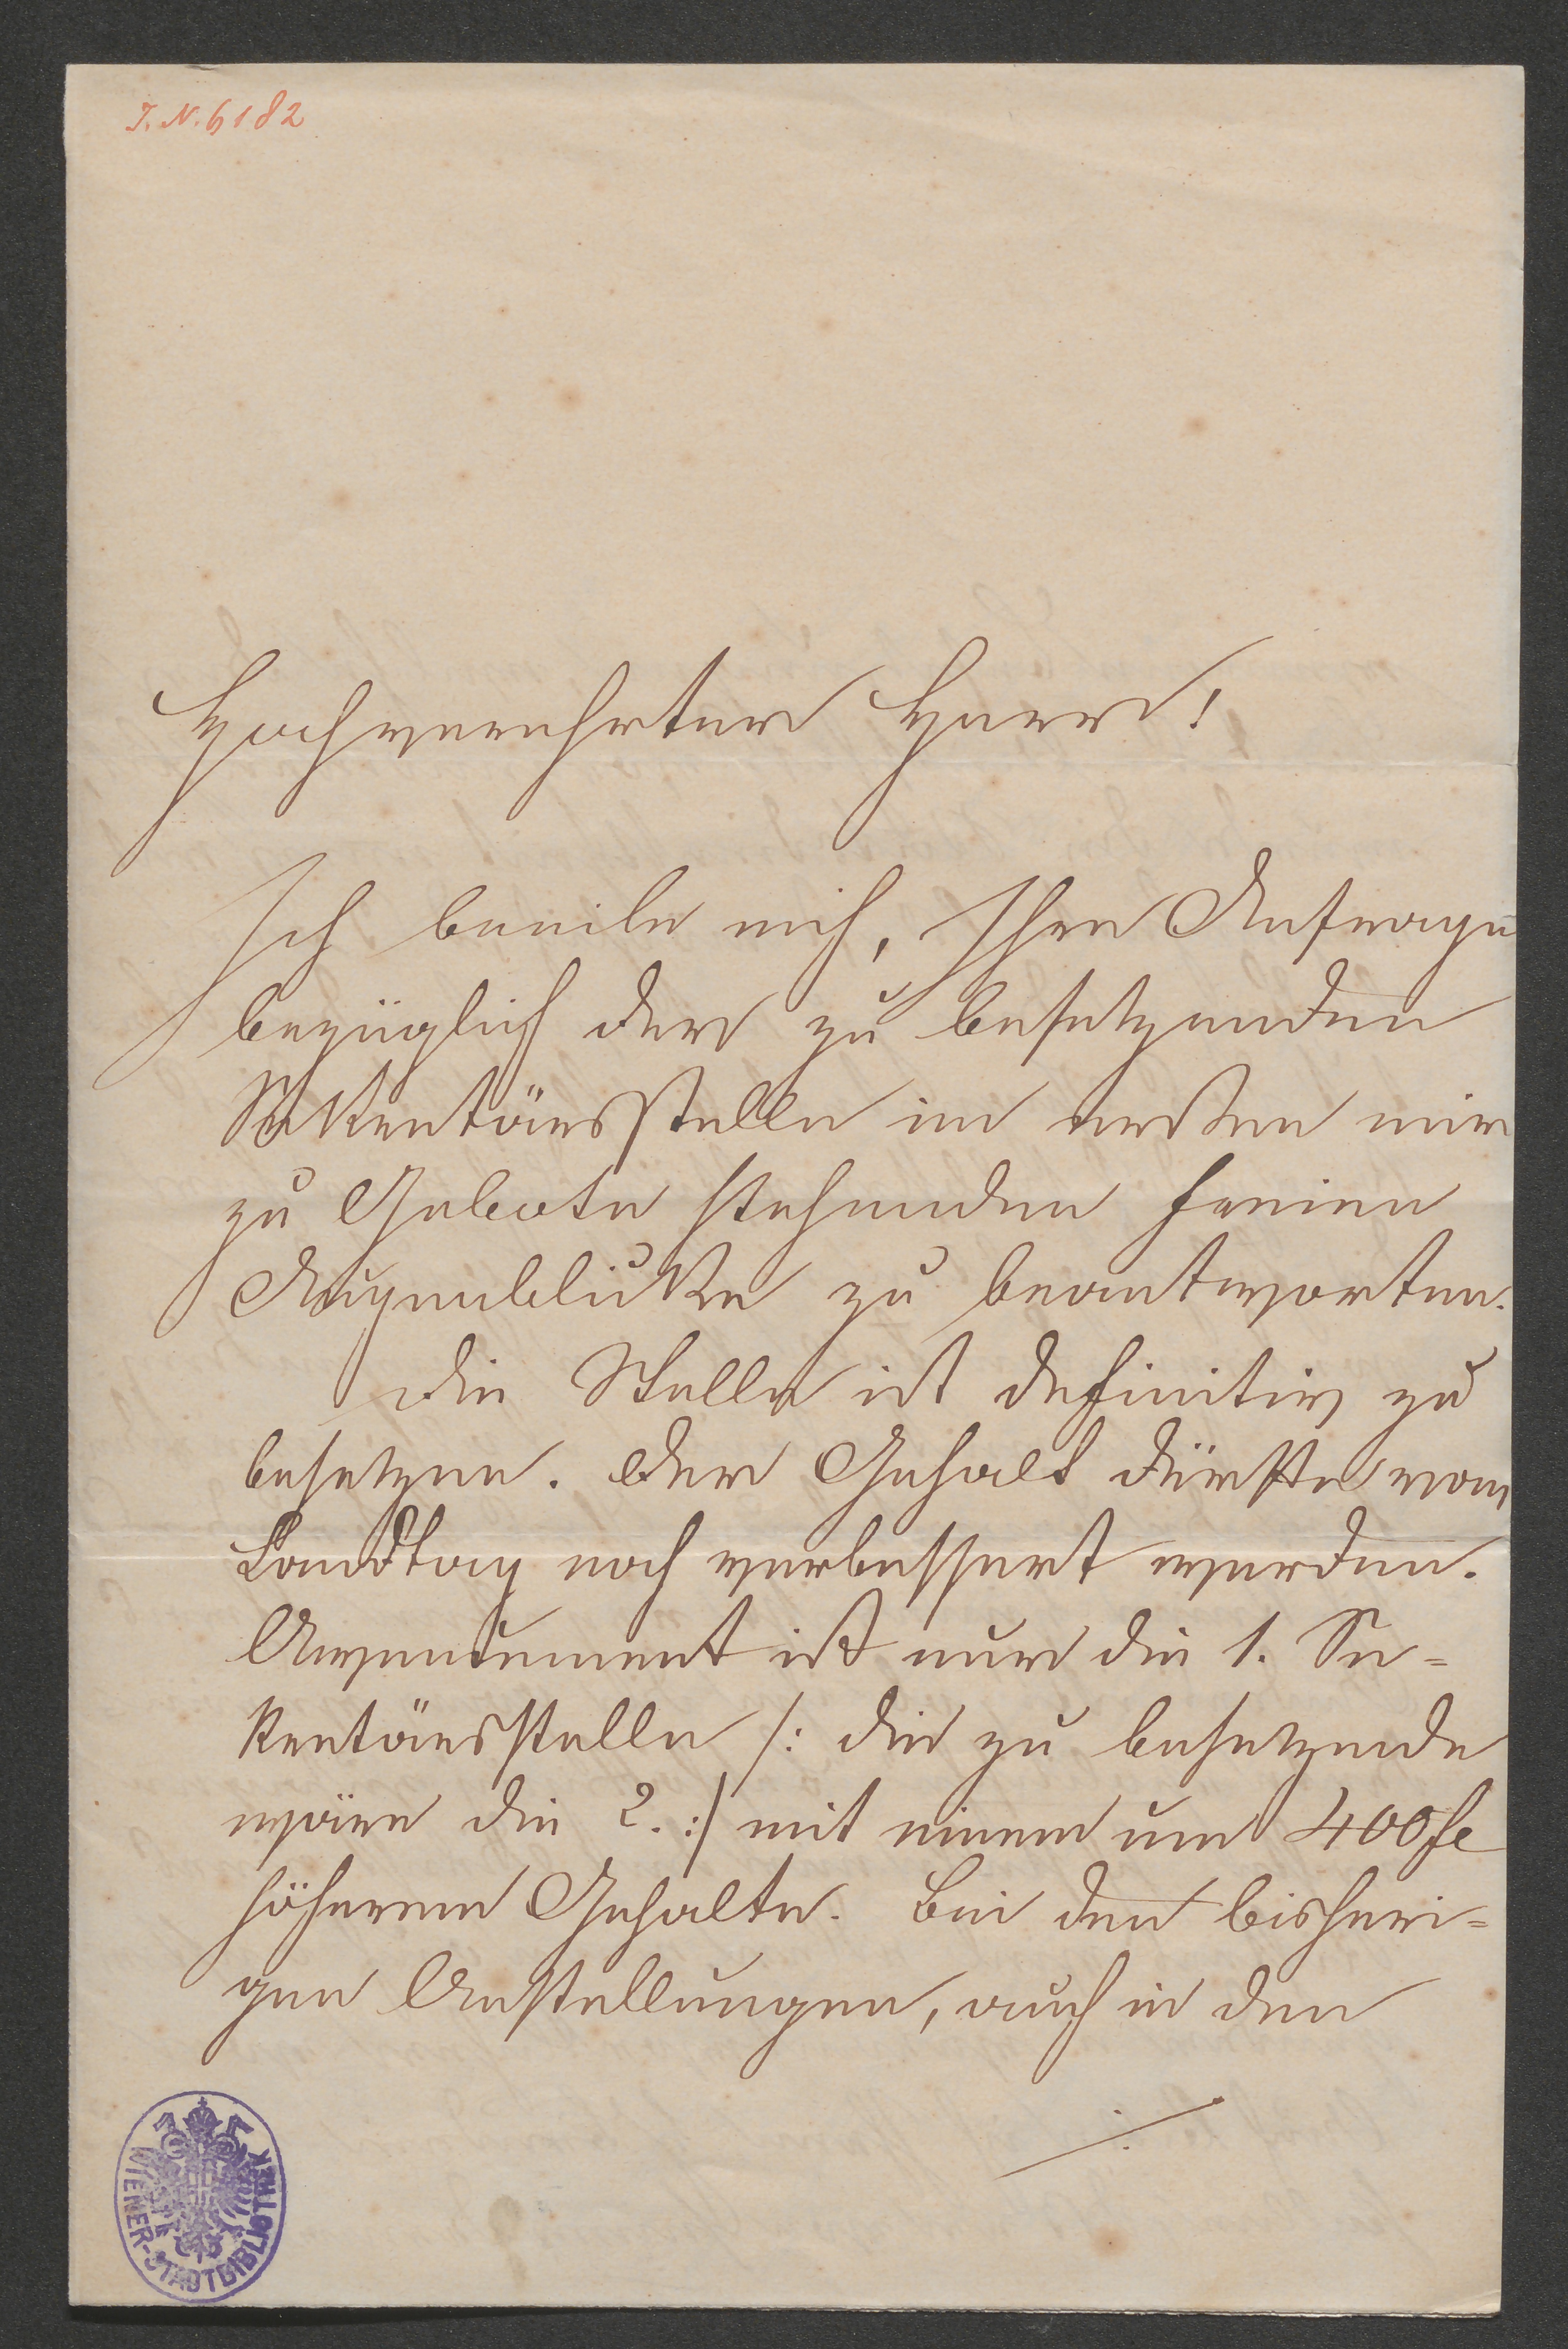 I. N. 6182
Hochverehrter Herr!
Ich beeile mich, Ihre Anfrage
bezüglich der zu besetzenden
Sekretärsstelle im ersten mir
zu Gebote stehenden freien
Augenblicke zu beantworten.
Die Stelle ist definitiv zu
besetzen. Der Gehalt dürfte vom
Landtag noch verbessert werden.
Avencement ist nur die 1. Se=
kretärsstelle /: die zu besetzende
wäre die 2. :/ mit einem um 400 fl
höherem Gehalte. Bei den bisheri=
gen Anstellungen, auch in den
./.
WIENER-STADTBIBLIOTHEK